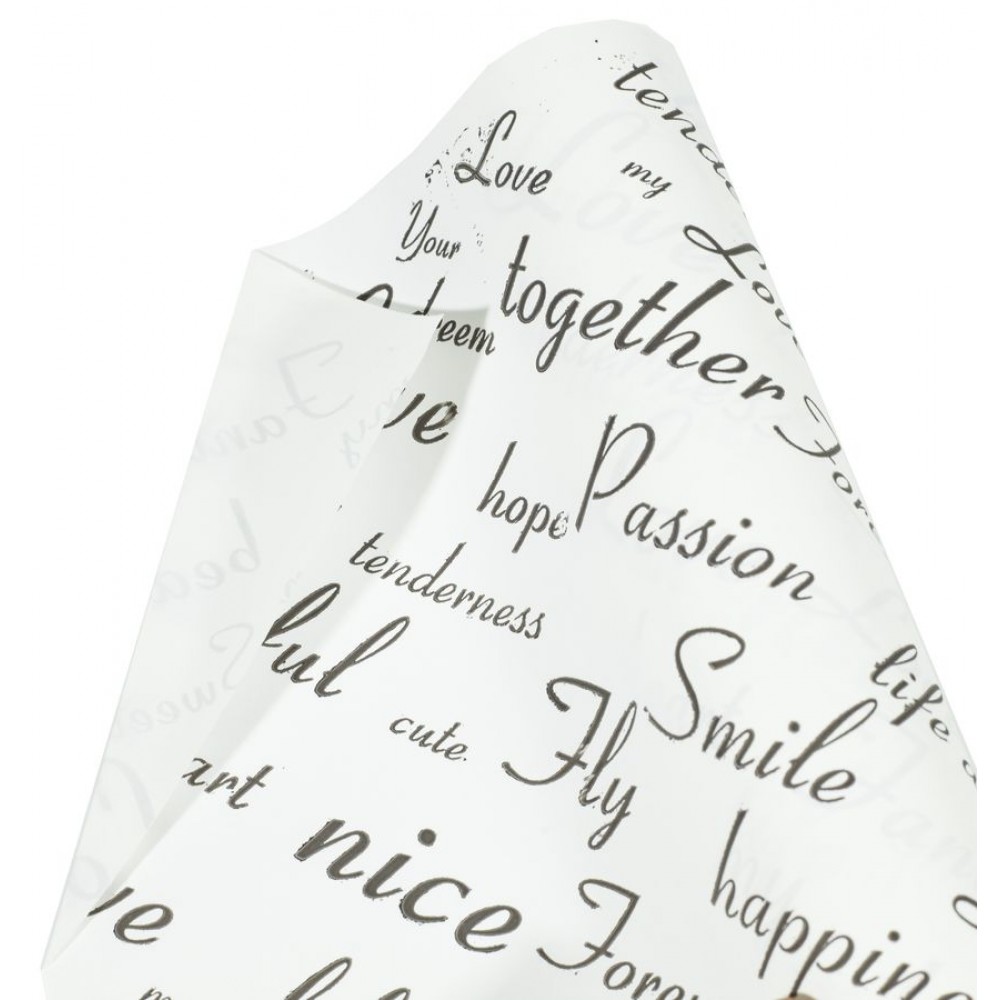 tende
Love
my
Your
Lov
deem
together
ve
Fore
hope
Passion
tenderness
ful
Smile
life
cute.
Fly
art
nice
happine
ve
Forev